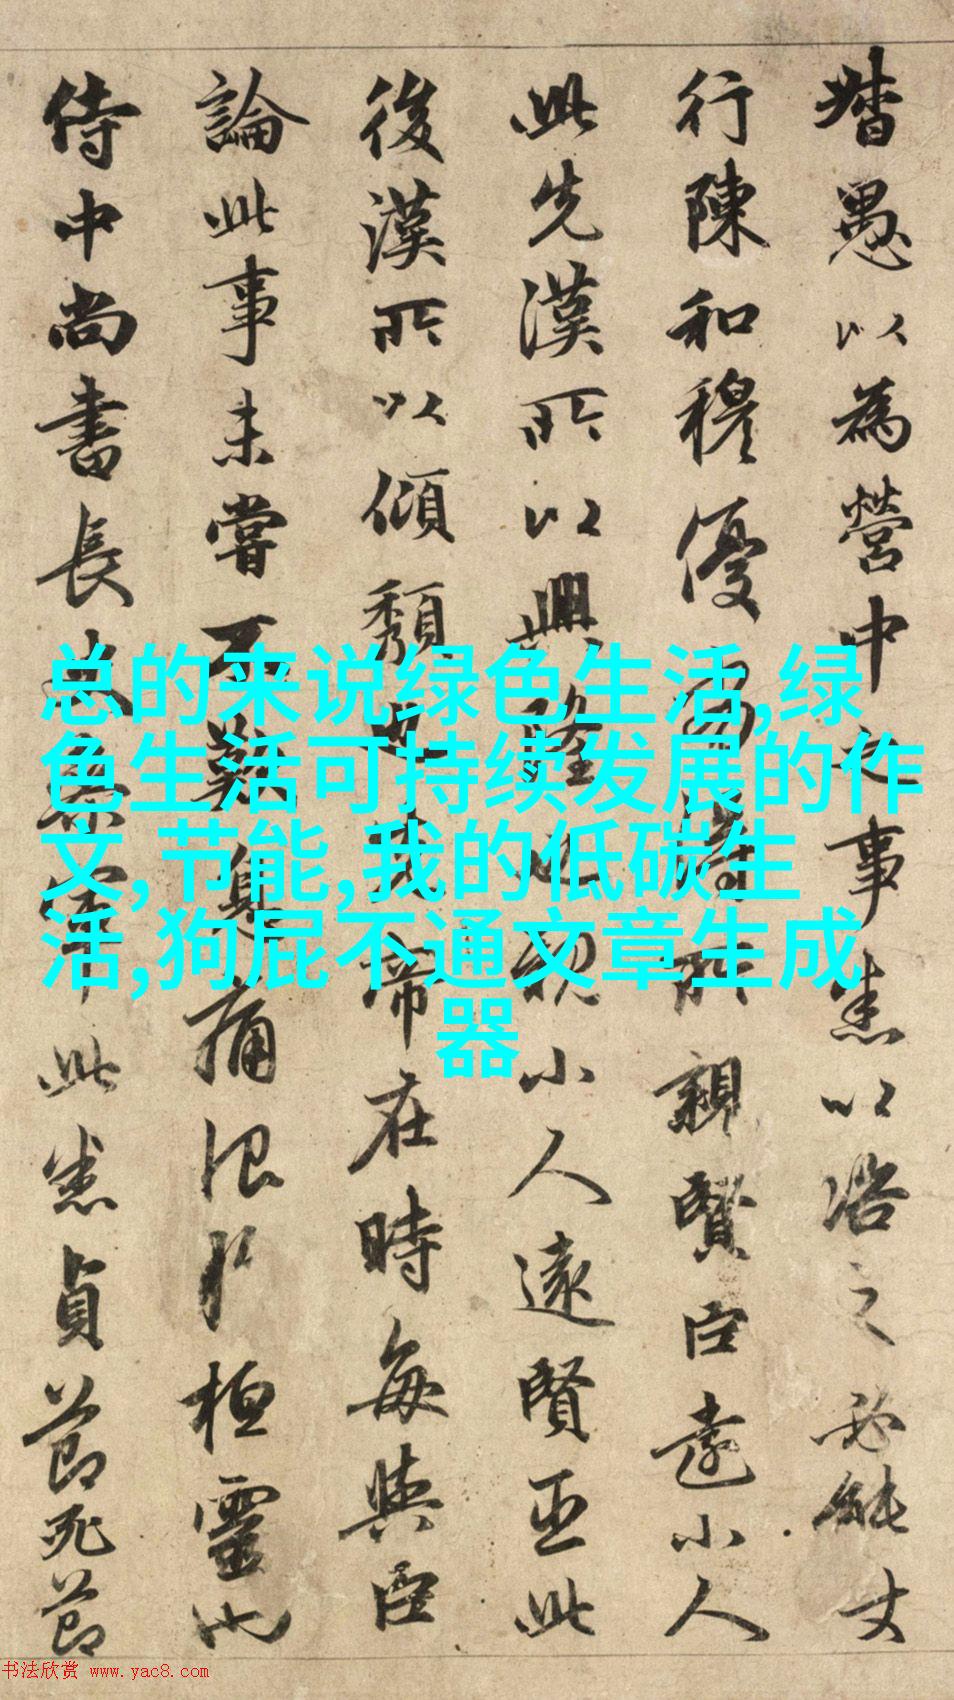 督愚以為營中之事悉以之必能丈
行陳和穆優劣得所親賢臣遠小人
此先漢所以興隆也親小人遠賢臣此
後漢所以傾頹也先帝在時每與臣
論此事未嘗不歎息痛恨於桓靈也
侍中尚書長史參軍此悉貞節死節
总的来说绿色生活,绿
色生活可持续发展的作
文,节能,我的低碳生
活,狗屁不通文章生成
器
书法欣赏 www.yac8.com